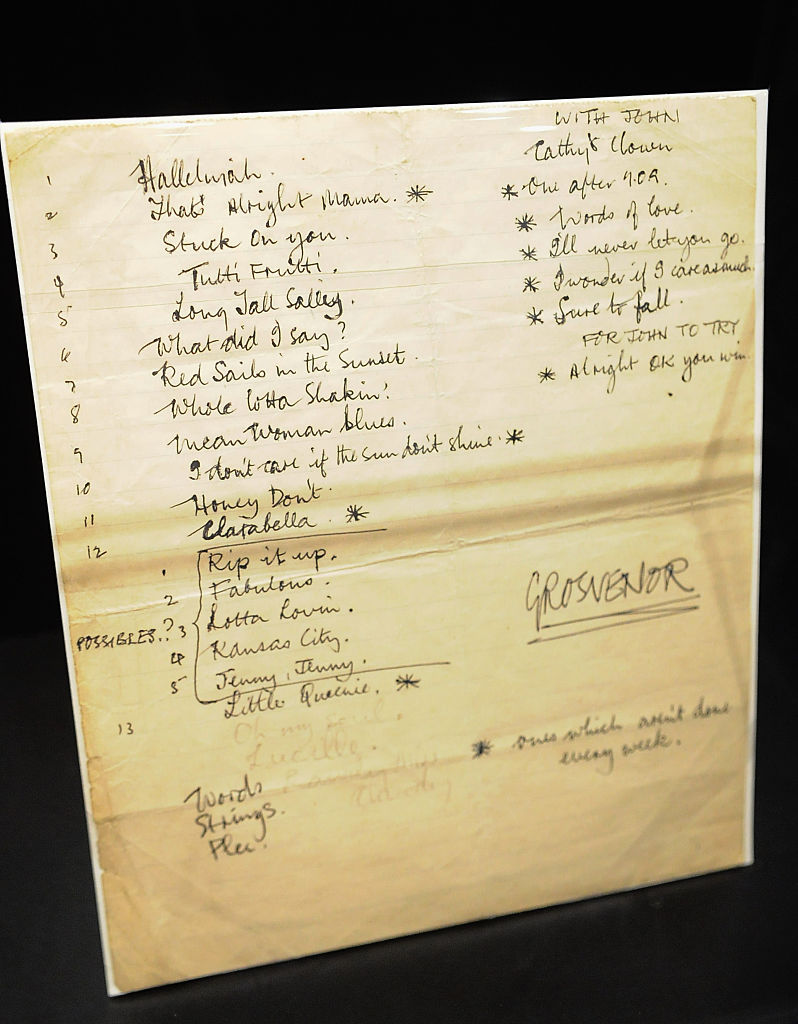 1 Hallelujah.
2 That's Alright Mama. *
3 Stuck On you.
4 Tutti Fruitti.
5 Long Tall Salley.
6 What did I say?
7 Red Sails in the Sunset.
8 Whole lotta Shakin'.
9 Mean Woman blues.
10 I don't care if the sun don't shine. *
11 Honey Don't.
12 Clarabella *
POSSIBLES.?
1 Rip it up.
2 Fabulous.
3 Lotta Lovin.
4 Kansas City.
5 Jenny, Jenny.
13 Little Queenie. *
Oh my soul.
Lucille.
Words
Strings.
Plec.
WITH JOHN
Cathy's Clown
* One after 909.
* Words of love.
* I'll never let you go.
* I wonder if I care as much.
* Sure to fall.
FOR JOHN TO TRY
* Alright OK you win.
GROSVENOR
* ones which aren't done
every week.